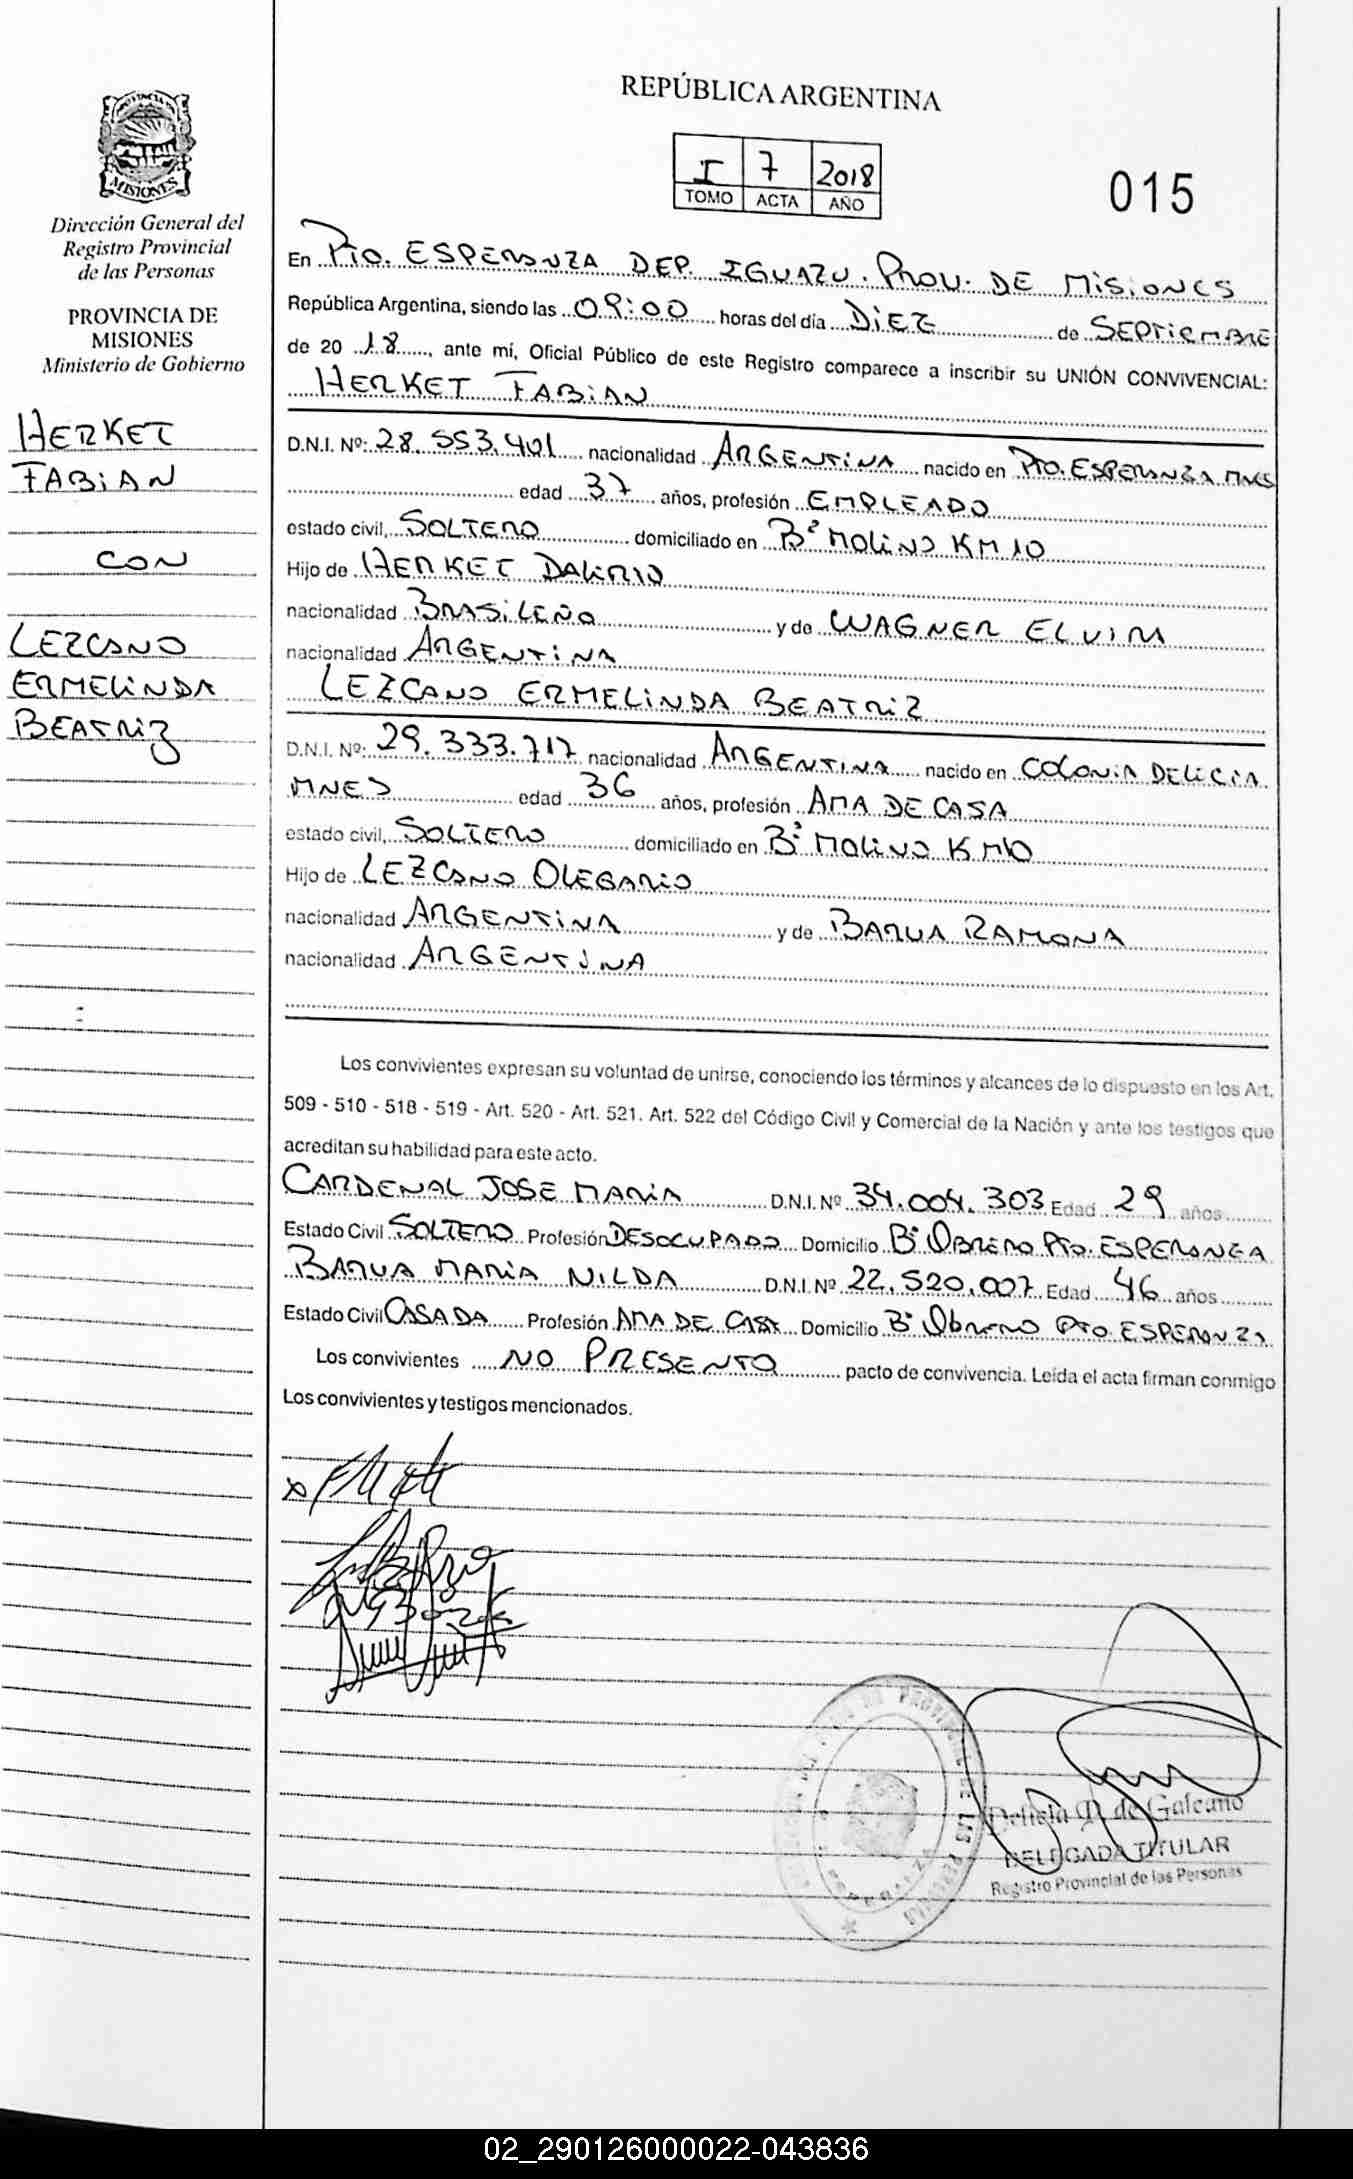 REPÚBLICA ARGENTINA
I 7 2018
TOMO ACTA AÑO
015
MISIONES
Dirección General del
Registro Provincial
de las Personas
PROVINCIA DE
MISIONES
Ministerio de Gobierno
HERKET
FABIAN
CON
LEZCANO
ERMELINDA
BEATRIZ
En PTO. ESPERANZA DEP. IGUAZU. PROV. DE MISIONES
República Argentina, siendo las 09:00 horas del día DIEZ de SEPTIEMBRE
de 20 18, ante mí, Oficial Público de este Registro comparece a inscribir su UNIÓN CONVIVENCIAL:
HERKET FABIAN
D.N.I. Nº: 28.553.401 nacionalidad ARGENTINA nacido en PTO. ESPERANZA MNES
edad 37 años, profesión EMPLEADO
estado civil, SOLTERO domiciliado en Bº MOLINO KM 10
Hijo de HERKET DALIRIO
nacionalidad BRASILEÑO y de WAGNER ELVIRA
nacionalidad ARGENTINA
LEZCANO ERMELINDA BEATRIZ
D.N.I. Nº: 29.333.717 nacionalidad ARGENTINA nacido en COLONIA DELICIA
MNES edad 36 años, profesión AMA DE CASA
estado civil, SOLTERO domiciliado en Bº MOLINO KM10
Hijo de LEZCANO OLEGARIO
nacionalidad ARGENTINA y de BARUA RAMONA
nacionalidad ARGENTINA
Los convivientes expresan su voluntad de unirse, conociendo los términos y alcances de lo dispuesto en los Art.
509 - 510 - 518 - 519 - Art. 520 - Art. 521. Art. 522 del Código Civil y Comercial de la Nación y ante los testigos que
acreditan su habilidad para este acto.
CARDENAL JOSE MARIA D.N.I. Nº 34.004.303 Edad 29 años
Estado Civil SOLTERO Profesión DESOCUPADO Domicilio Bº OBRERO PTO. ESPERANZA
BARUA MARIA NILDA D.N.I. Nº 22.520.007 Edad 46 años
Estado Civil CASADA Profesión AMA DE CASA Domicilio Bº OBRERO PTO. ESPERANZA
Los convivientes NO PRESENTO pacto de convivencia. Leída el acta firman conmigo
Los convivientes y testigos mencionados.
Delicia de Galeano
DELEGADA TITULAR
Registro Provincial de las Personas
02_290126000022-043836